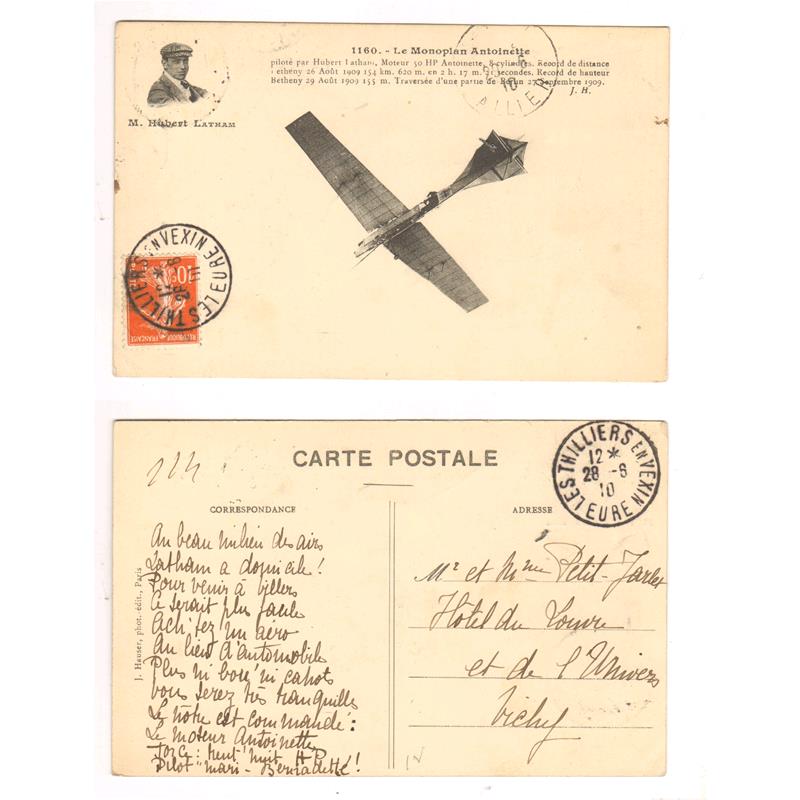 1160. - Le Monoplan Antoinette
piloté par Hubert Latham, Moteur 50 HP Antoinette, 8 cylindres. Record de distance
Betheny 26 Août 1909 154 km. 620 m. en 2 h. 17 m. 21 secondes. Record de hauteur
Betheny 29 Août 1909 155 m. Traversée d'une partie de Berlin 27 Septembre 1909.
J. H.
M. Hubert LATHAM
10
ALLIER
LES THILLIERS EN VEXIN EURE
10c
REPUBLIQUE FRANÇAISE
124
CARTE POSTALE
LES THILLIERS EN VEXIN
12 *
28 - 6
10
EURE
CORRESPONDANCE
ADRESSE
Au beau milieu des airs
Latham a domicile !
Pour venir à villers
Ce serait plus facile
Achetez un aéro
Au lieu d'automobile
Plus ni boue ni cahots
vous serez très tranquilles
Le nôtre est commandé :
Le moteur Antoinette
Force : trent' huit HP
Pilot' mari - Bernadette !
J. Hauser, phot.-édit., Paris
Mr et Mme Petit-Jarlet
Hôtel du Louvre
et de l'Univers
Vichy